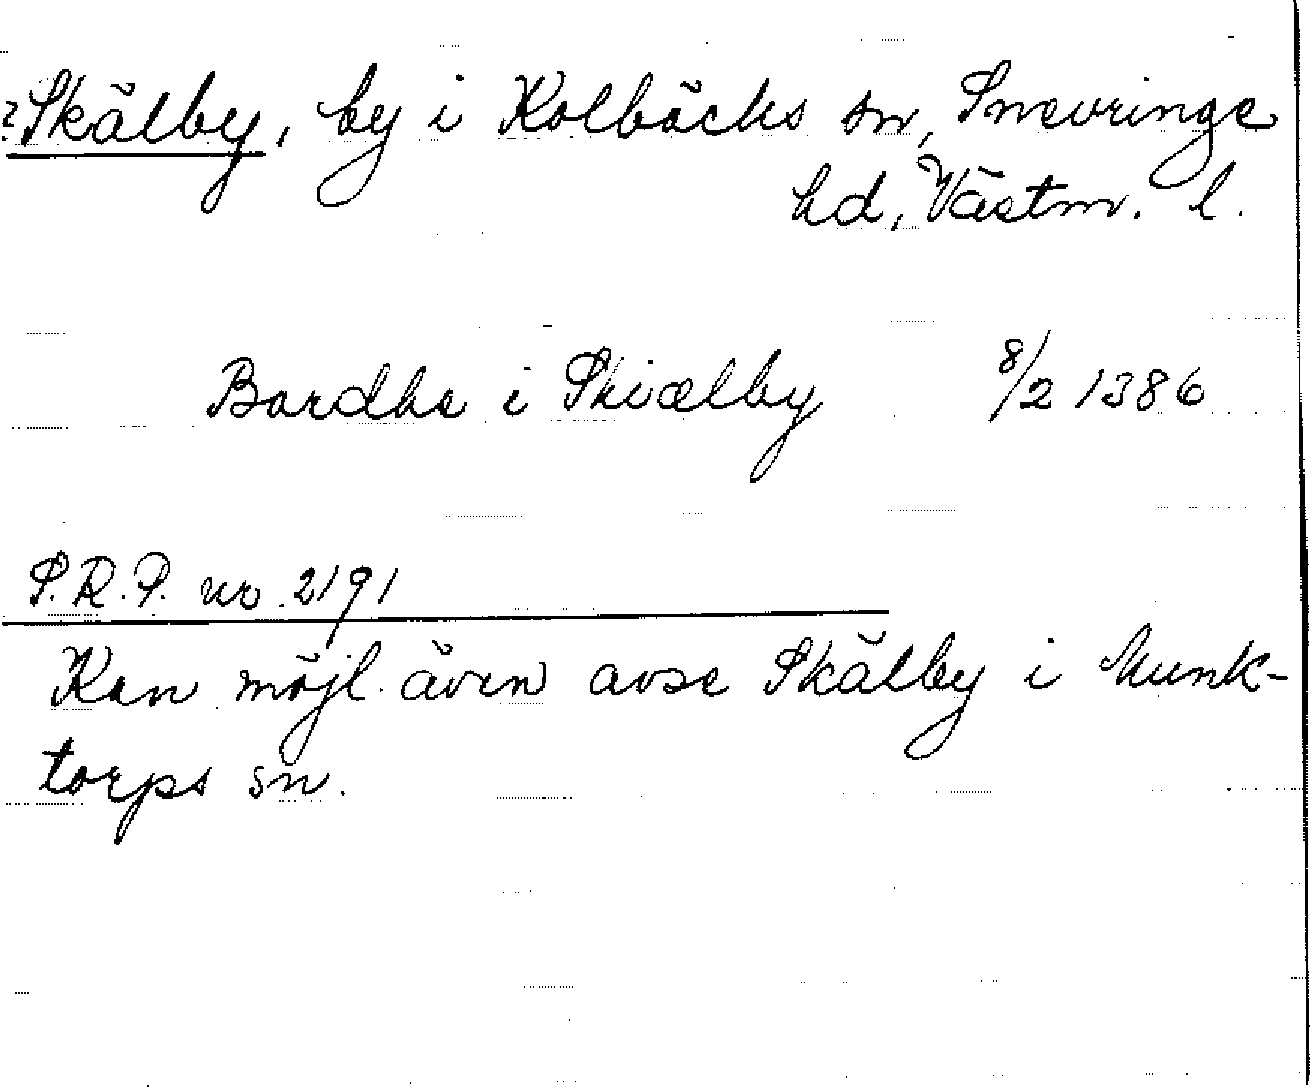 ? Skälby, by i Kolbäcks sn, Snevringe
hd, Västm. l.
Bardhe i Skiælby 8/2 1386
S.R.P. nr. 2191
Kan möjl. även avse Skälby i Munk-
torps sn.